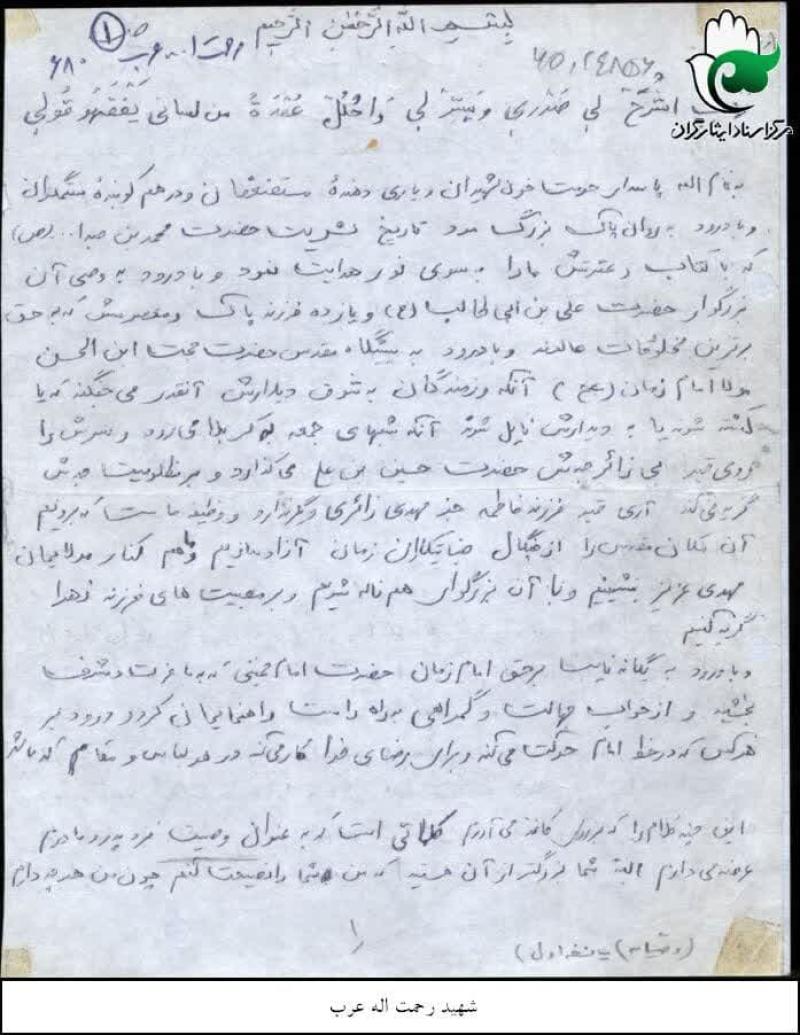 بسم الله الرحمن الرحیم
۱
رحمت اله عرب
۶۸۰
مرکز اسناد ایثارگران
اشرح لی صدری و یسر لی واحلل عقدة من لسانی یفقهو قولی
به نام الله پاسدار حرمت خون شهیدان و یاری دهندهٔ مستضعفان و درهم کوبندهٔ ستمگران
و با درود به روان پاک بزرگ مرد تاریخ بشریت حضرت محمد بن عبدا... (ص)
که با کتاب و عترتش ما را به سوی نور هدایت نمود و با درود به وصی آن
بزرگوار حضرت علی بن ابی طالب (ع) و یازده فرزند پاک و معصومش که به حق
برترین مخلوقات عالمند و با درود به پیشگاه مقدس حضرت حجت ابن الحسن
مولا امام زمان (عج) آنکه رزمندگان به شوق دیدارش آنقدر می جنگند که یا
کشته شوند یا به دیدارش نایل شوند آنکه شبهای جمعه به کربلا می رود و سرش را
روی قبر جدش حضرت حسین بن علی می گذارد و بر مظلومیت جدش
گریه می کند آری قبر فرزند فاطمه جز مهدی زائری دگر ندارد و وظیفه ما است که برویم
آن مکان مقدس را از چنگال جنایتکاران زمان آزاد سازیم و ما هم کنار مولایمان
مهدی عزیز بنشینیم و با آن بزرگوار هم ناله شویم و بر مصیبت های فرزند زهرا
گریه کنیم
و با درود به یگانه نایب بر حق امام زمان حضرت امام خمینی که به ما عزت و شرف
بخشید و از خواب جهالت و گمراهی به راه راست راهنمایمانی کرد و درود بر
هر کس که در خط امام حرکت می کند و برای رضای خدا کار می کند در هر لباس و مقام که باشد
این چند کلام را که بر روی کاغذ می آورم کلماتی است که به عنوان وصیت نزد پدر و مادرم
عرضه می دارم البته شما بزرگتر از آن هستید که من شما را نصیحت کنم چون من هر چه دارم
۱
(وصیتنامه) صفحه اول)
شهید رحمت اله عرب